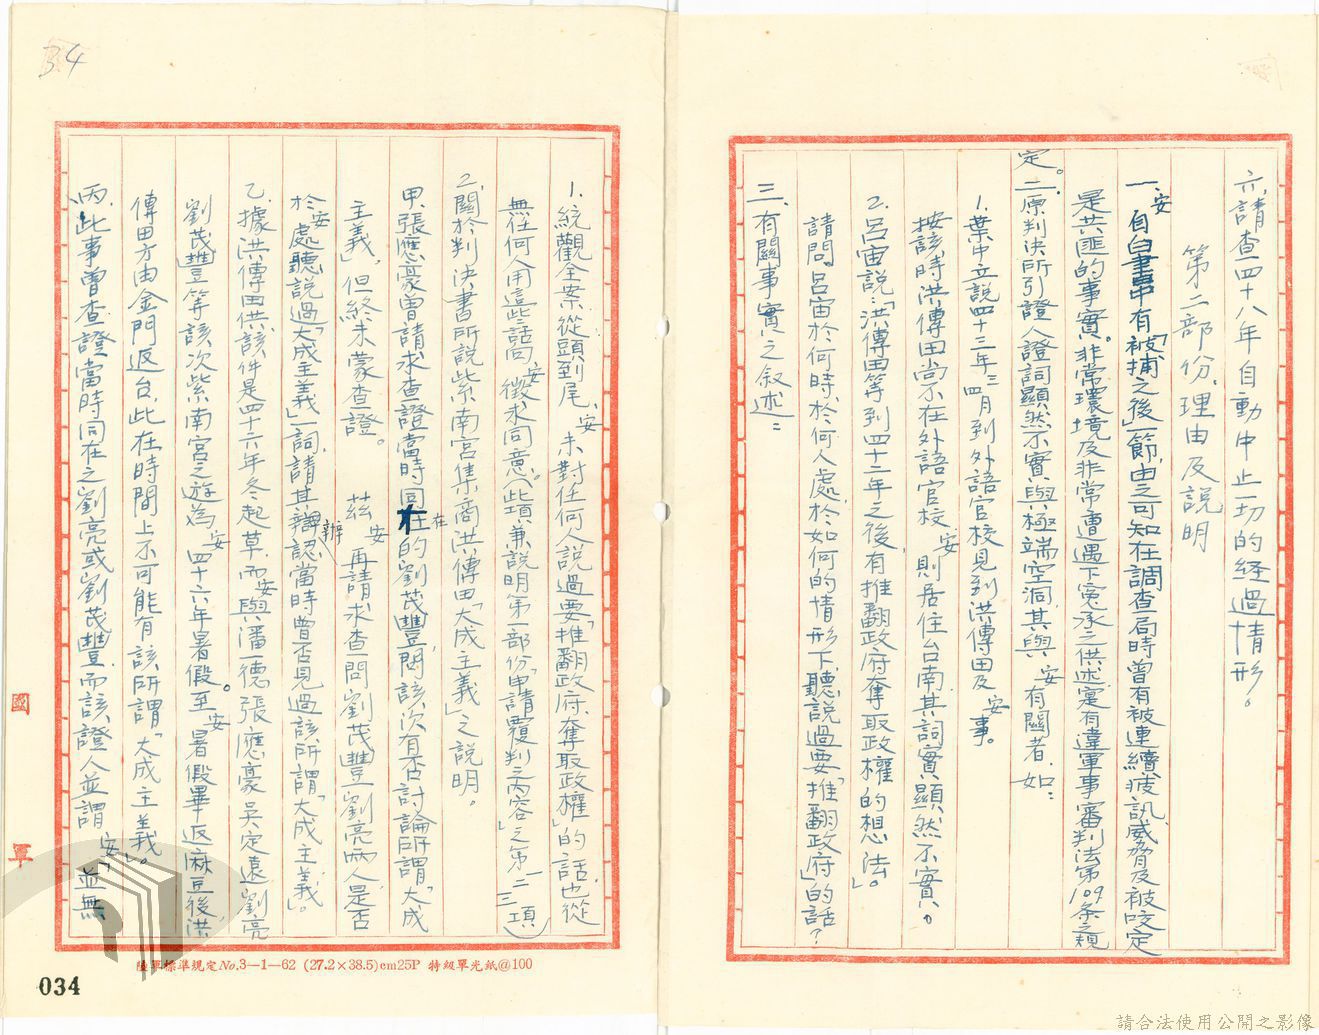 六、請查四十八年自動中止一切的經過情形。
第二部份、理由及說明
一、安自白書中有「被捕之後」一節，由之可知在調查局時曾有被連續疲訊威脅及被咬定
是共匪的事實。非常環境及非常遭遇下冤承之供述寔有違軍事審判法第109條之規
定。二、原判決所引證人證詞顯然不實與極端空洞，其與安有關者，如：
1.葉中立說四十三年三、四月到外語官校見到洪傳田及安事。
按該時洪傳田尚不在外語官校，安則居住台南，其詞實顯然不實。
2.呂宙說：「洪傳田等到四十二年之後有推翻政府奪取政權的想法。」
請問呂宙於何時、於何人處、於如何的情形下，聽說過要「推翻政府」的話？
三、有關事實之叙述：
34
1.統觀全案，從頭到尾，安未對任何人說過要「推翻政府、奪取政權」的話，也從
無任何人用這些話向安徵求同意。（此項兼說明第一部份「申請覆判之內容」之第一、二、三項）
2.關於判決書所說紫南宮集商洪傳田「大成主義」之說明。
甲、張應豪曾請求查證當時同在的劉茂豐，問該次有否討論所謂「大成
主義」，但終未蒙查證。　茲安再請求查問劉茂豐劉亮兩人是否
於安處聽說過「大成主義」一詞，請其辨認當時曾否見過該所謂「大成主義」。
乙、據洪傳田供，該件是四十六年冬起草，而安與潘一德張應豪吳定遠劉亮
劉茂豐等該次紫南宮之遊為安四十六年暑假。至安暑假畢返麻豆後，洪
傳田方由金門返台，此在時間上不可能有該所謂「大成主義」。
丙、此事曾查證當時同在之劉亮或劉茂豐，而該證人並謂安「並無
國軍
陸軍標準規定No.3—1—62 (27.2×38.5)cm25P 特級單光紙@100
034
請合法使用公開之影像